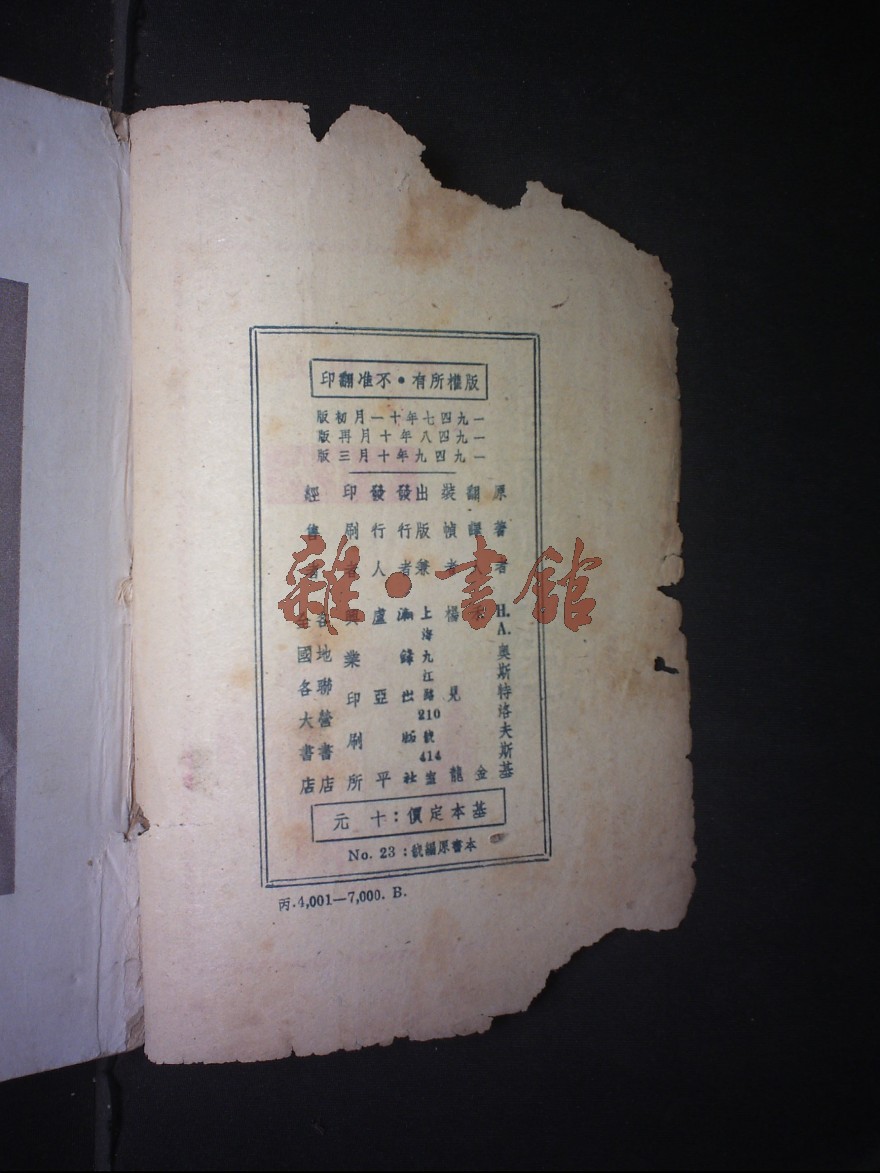 版權所有•不准翻印
一九四七年十一月初版
一九四八年十月再版
一九四九年十月三版
原著者 H. A. 奧斯特洛夫斯基
翻譯 金
裝幀者 楊見龍
出版兼
發行者 上海九江路210號414室
潮鋒出版社
發行人 盧亞平
印刷者 興業印刷所
經售者 各地聯營書店
全國各大書店
基本定價：十元
本書原編號：No. 23
丙.4,001—7,000. B.
雜•書館